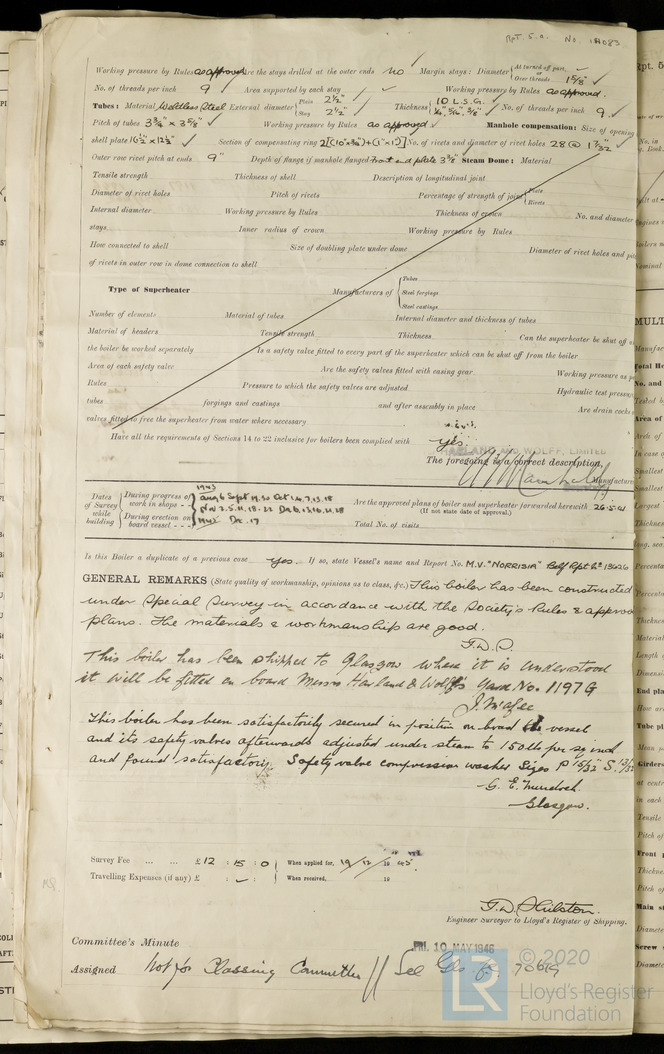 Rpt. 5.a. No. 18083
Working pressure by Rules as approved Are the stays drilled at the outer ends no Margin stays: Diameter { At turned off part, or Over threads 1 5/8" ✓
No. of threads per inch 9 ✓ Area supported by each stay ✓ Working pressure by Rules as approved.
Tubes: Material Weldless Steel External diameter { Plain 2 1/2" Stay 2 1/2" ✓ Thickness { 10 L.S.G. 1/4", 5/16", 3/8" ✓ No. of threads per inch 9 ✓
Pitch of tubes 3 3/4" x 3 5/8" ✓ Working pressure by Rules as approved ✓ Manhole compensation: Size of opening
shell plate 16 1/2" x 12 1/2" ✓ Section of compensating ring No. of rivets and diameter of rivet holes 28 @ 1 7/32" ✓
Outer row rivet pitch at ends 9" Depth of flange if manhole flanged Front end plate 3 3/8" Steam Dome: Material
Tensile strength Thickness of shell Description of longitudinal joint
Diameter of rivet holes Pitch of rivets Percentage of strength of joint { Plate Rivets
Internal diameter Working pressure by Rules Thickness of crown No. and diameter
stays Inner radius of crown Working pressure by Rules
How connected to shell Size of doubling plate under dome Diameter of rivet holes and
of rivets in outer row in dome connection to shell
Type of Superheater Manufacturers of { Tubes Steel forgings Steel castings
Number of elements Material of tubes Internal diameter and thickness of tubes
Material of headers Tensile strength Thickness Can the superheater be shut off
the boiler be worked separately Is a safety valve fitted to every part of the superheater which can be shut off from the boiler
Area of each safety valve Are the safety valves fitted with easing gear Working pressure as
Rules Pressure to which the safety valves are adjusted Hydraulic test pressure
tubes forgings and castings and after assembly in place Are drain cocks
valves fitted to free the superheater from water where necessary
Have all the requirements of Sections 14 to 22 inclusive for boilers been complied with yes.
HARLAND AND WOLFF, LIMITED
The foregoing is a correct description,
Manufacturer
Dates of Survey while building { During progress of work in shops - - 1943 Aug 6 Sept 14.30 Oct 1.4.7.13.18 Nov 2.5.11.18.22 Dec 6.13.16.21.28
During erection on board vessel - - - 1945 Dec. 17
Are the approved plans of boiler and superheater forwarded herewith 26-5-41
(If not state date of approval.)
Total No. of visits
Is this Boiler a duplicate of a previous case yes. If so, state Vessel's name and Report No. M.V. "NORRISIA" Belf Rpt No 13626
GENERAL REMARKS (State quality of workmanship, opinions as to class, &c.) This boiler has been constructed
under Special Survey in accordance with the Society's Rules & approved
plans. The materials & workmanship are good.
T.D.S.
This boiler has been shipped to Glasgow where it is understood
it will be fitted on board Messrs Harland & Wolff's Yard No. 1197G
J. McAfee
This boiler has been satisfactorily secured in position on board the vessel
and its safety valves afterwards adjusted under steam to 150 lb per sq inch
and found satisfactory. Safety valve compression washer sizes P 15/32" S. 13/32
G. E. Murdoch.
Glasgow.
Survey Fee ... ... £12 : 15 : 0 When applied for, 19/12/1945
Travelling Expenses (if any) £ : - : When received, 19
Engineer Surveyor to Lloyd's Register of Shipping.
Committee's Minute FRI. 10 MAY 1946
Assigned Not for Classing Committee // See Gls. 70619
© 2020
LR Lloyd's Register
Foundation